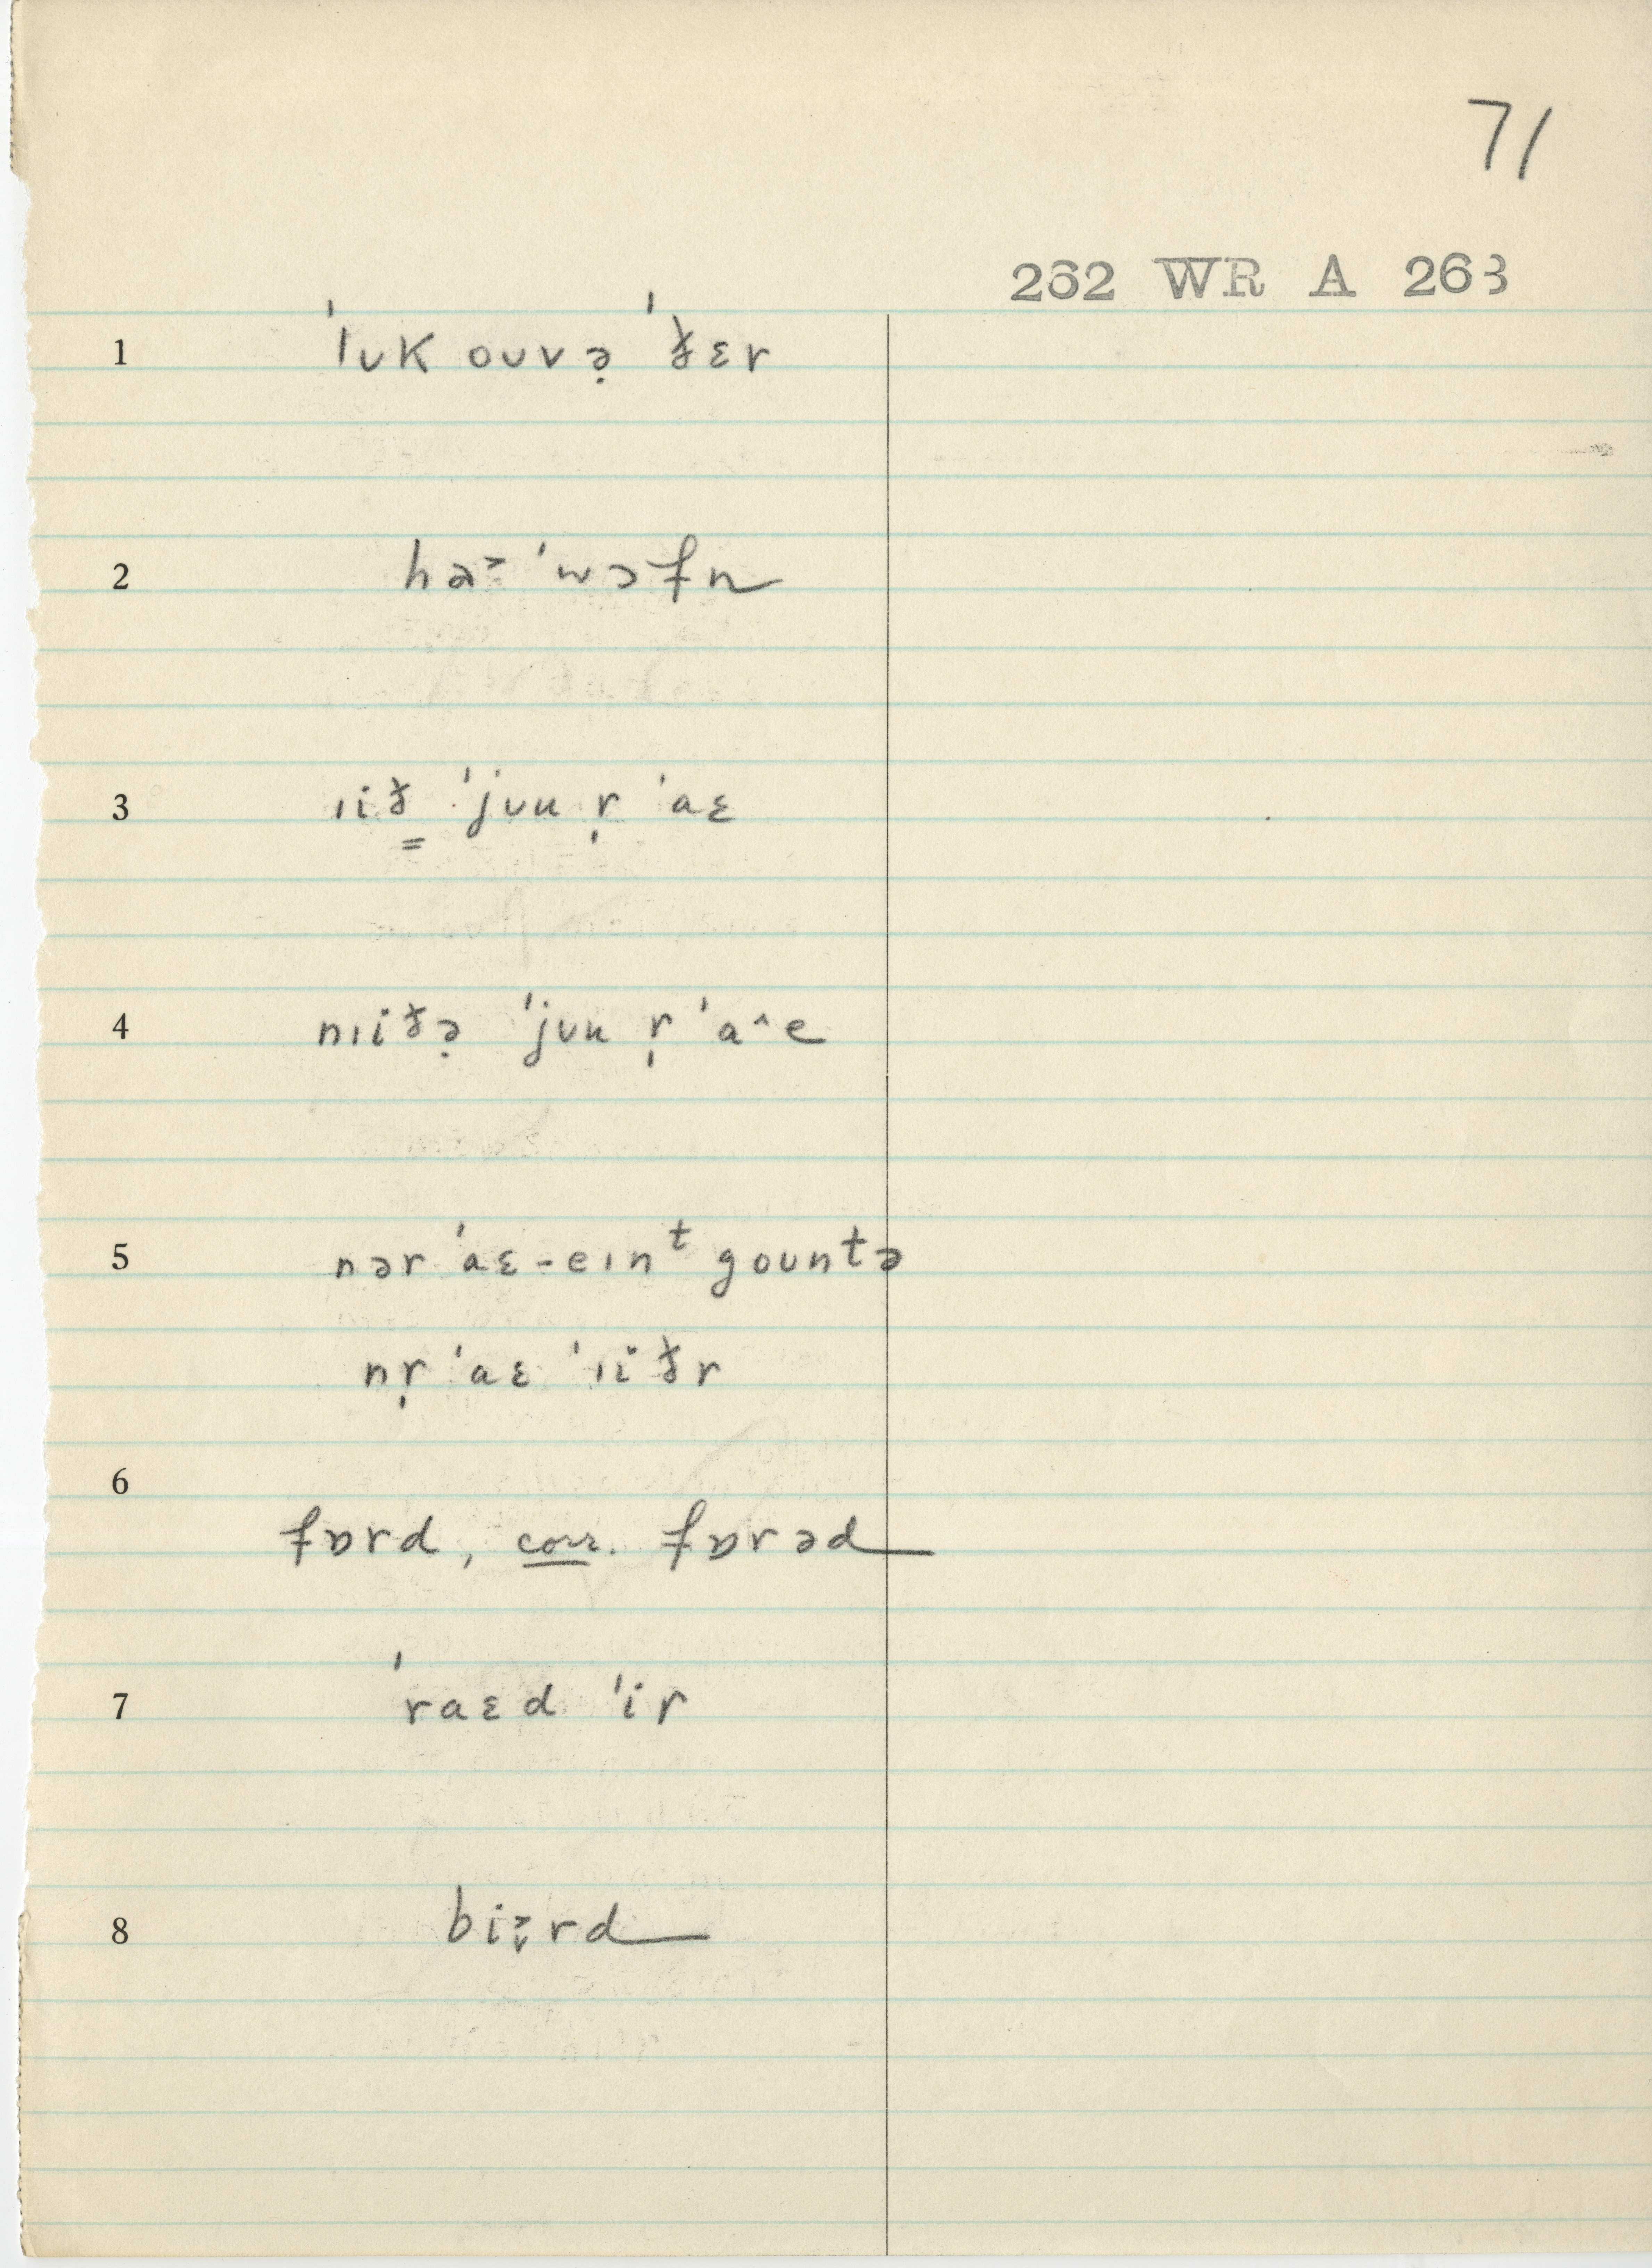 71
262 WR A 263
1 ˈlʊk oʊvə̣ ˈðɛr
2 hə˃ ˈwɔfn
3 ɪið̳ ˈjʊu r̩ ˈaɛ
4 nɪiðə̣ ˈjʊu r̩ ˈa^e
5 nər ˈaɛ-eɪnᵗ goʊntə
nr̩ ˈaɛ ˈɪiðr
6
fɒrd, corr. fɒrəd
7 ˈraɛd ˈir
8 biə̣rd